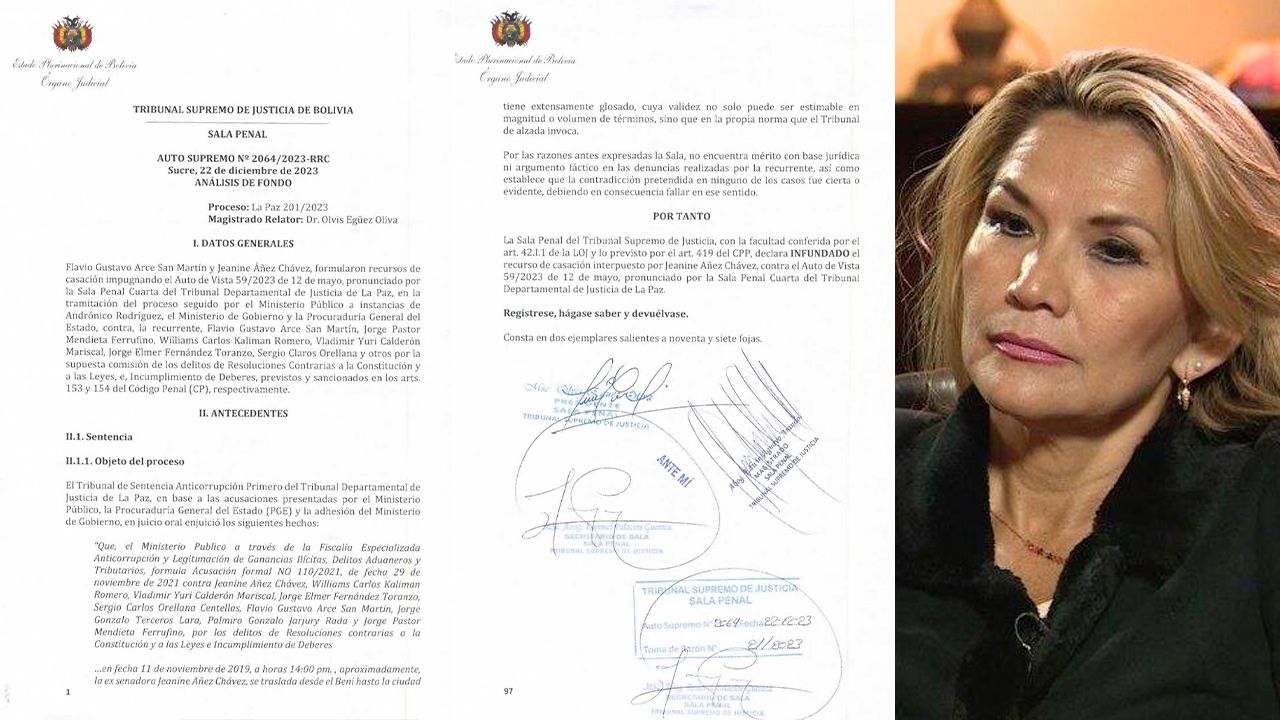 Estado Plurinacional de Bolivia
Órgano Judicial
TRIBUNAL SUPREMO DE JUSTICIA DE BOLIVIA
SALA PENAL
AUTO SUPREMO Nº 2064/2023-RRC
Sucre, 22 de diciembre de 2023
ANÁLISIS DE FONDO
Proceso: La Paz 201/2023
Magistrado Relator: Dr. Olvis Egüez Oliva
I. DATOS GENERALES
Flavio Gustavo Arce San Martín y Jeanine Áñez Chávez, formularon recursos de
casación impugnando el Auto de Vista 59/2023 de 12 de mayo, pronunciado por
la Sala Penal Cuarta del Tribunal Departamental de Justicia de La Paz, en la
tramitación del proceso seguido por el Ministerio Público a instancias de
Andrónico Rodríguez, el Ministerio de Gobierno y la Procuraduría General del
Estado, contra, la recurrente, Flavio Gustavo Arce San Martín, Jorge Pastor
Mendieta Ferrufino, Williams Carlos Kaliman Romero, Vladimir Yuri Calderón
Mariscal, Jorge Elmer Fernández Toranzo, Sergio Claros Orellana y otros por la
supuesta comisión de los delitos de Resoluciones Contrarias a la Constitución y
a las Leyes, e, Incumplimiento de Deberes, previstos y sancionados en los arts.
153 y 154 del Código Penal (CP), respectivamente.
II. ANTECEDENTES
II.1. Sentencia
II.1.1. Objeto del proceso
El Tribunal de Sentencia Anticorrupción Primero del Tribunal Departamental de
Justicia de La Paz, en base a las acusaciones presentadas por el Ministerio
Público, la Procuraduría General del Estado (PGE) y la adhesión del Ministerio
de Gobierno, en juicio oral enjuició los siguientes hechos:
"Que, el Ministerio Publico a través de la Fiscalía Especializada
Anticorrupción y Legitimación de Ganancias Ilícitas, Delitos Aduaneros y
Tributarios, formula Acusación formal NO 110/2021, de fecha 29 de
noviembre de 2021 contra Jeanine Áñez Chávez, Williams Carlos Kaliman
Romero, Vladimir Yuri Calderón Mariscal, Jorge Elmer Fernández Toranzo,
Sergio Carlos Orellana Centellas, Flavio Gustavo Arce San Martín, Jorge
Gonzalo Terceros Lara, Palmiro Gonzalo Jarjury Rada y Jorge Pastor
Mendieta Ferrufino, por los delitos de Resoluciones contrarias a la
Constitución y a las Leyes e Incumplimiento de Deberes
...en fecha 11 de noviembre de 2019, a horas 14:00 pm. , aproximadamente,
la ex senadora Jeanine Añez Chávez, se traslada desde el Beni hasta la ciudad
1
Estado Plurinacional de Bolivia
Órgano Judicial
tiene extensamente glosado, cuya validez no solo puede ser estimable en
magnitud o volumen de términos, sino que en la propia norma que el Tribunal
de alzada invoca.
Por las razones antes expresadas la Sala, no encuentra mérito con base jurídica
ni argumento fáctico en las denuncias realizadas por la recurrente, así como
establece que la contradicción pretendida en ninguno de los casos fue cierta o
evidente, debiendo en consecuencia fallar en ese sentido.
POR TANTO
La Sala Penal del Tribunal Supremo de Justicia, con la facultad conferida por el
art. 42.I.1 de la LOJ y lo previsto por el art. 419 del CPP, declara INFUNDADO el
recurso de casación interpuesto por Jeanine Añez Chávez, contra el Auto de Vista
59/2023 de 12 de mayo, pronunciado por la Sala Penal Cuarta del Tribunal
Departamental de Justicia de La Paz.
Regístrese, hágase saber y devuélvase.
Consta en dos ejemplares salientes a noventa y siete fojas.
PRESIDENTE
SALA PENAL
TRIBUNAL SUPREMO DE JUSTICIA
MAGISTRADO
SALA PENAL
TRIBUNAL SUPREMO DE JUSTICIA
ANTE MÍ
SECRETARIO DE SALA
SALA PENAL
TRIBUNAL SUPREMO DE JUSTICIA
TRIBUNAL SUPREMO DE JUSTICIA
SALA PENAL
Auto Supremo Nº 2064 Fecha 22-12-23
Toma de Razón Nº 21/2023
SECRETARIO DE SALA
SALA PENAL
TRIBUNAL SUPREMO DE JUSTICIA
97